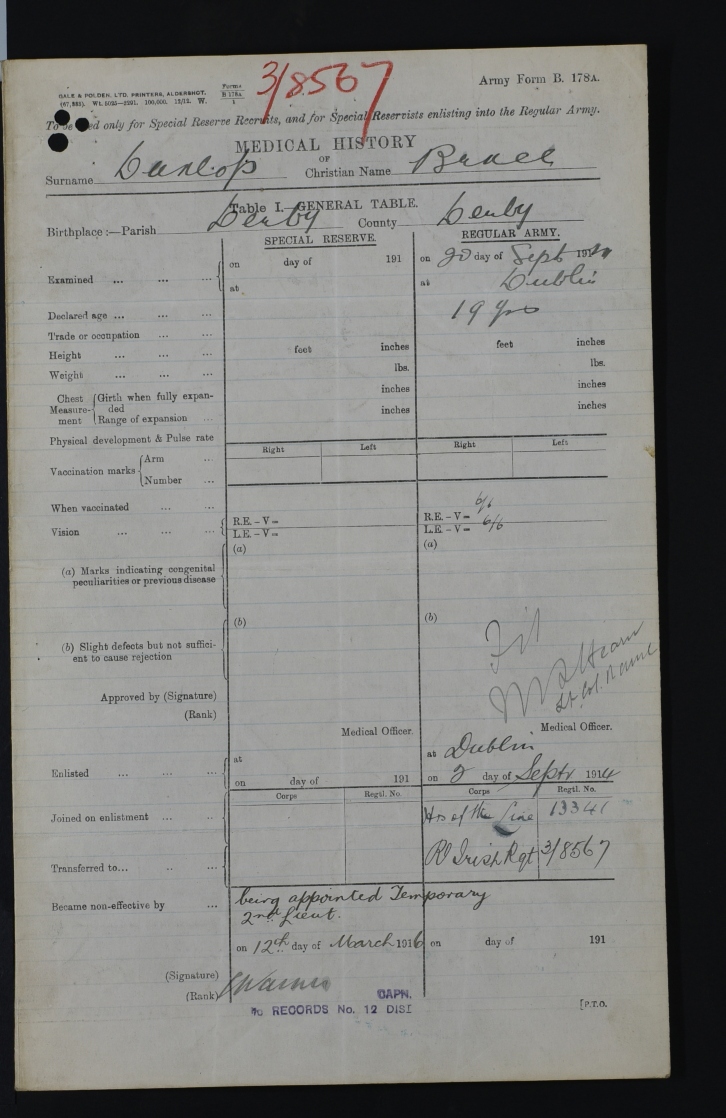 GALE & POLDEN, LTD. PRINTERS, ALDERSHOT.
(67,283). Wt. 5023—2291. 100,000. 12/12. W.
Forms
B 178A
1
3/8567
Army Form B. 178A.
To be used only for Special Reserve Recruits, and for Special Reservists enlisting into the Regular Army.
MEDICAL HISTORY
OF
Surname Dunlop Christian Name Bruce
Table I.—GENERAL TABLE.
Birthplace:—Parish Derby County Derby
SPECIAL RESERVE. REGULAR ARMY.
Examined ... ... ... on day of 191 on day of Sept 1914
at at Dublin
Declared age ... ... ... 19 yrs
Trade or occupation ...
Height ... ... ... feet inches feet inches
Weight ... ... ... lbs. lbs.
Chest Measurement Girth when fully expanded inches inches
Range of expansion ... inches inches
Physical development & Pulse rate
Right Left Right Left
Vaccination marks Arm ...
Number ...
When vaccinated ... ...
Vision ... ... ... R.E.–V= R.E.–V= 6/6
L.E.–V= L.E.–V= 6/6
(a) Marks indicating congenital peculiarities or previous disease (a) (a)
(b) Slight defects but not sufficient to cause rejection (b) (b)
Fit
Approved by (Signature)
(Rank) Lt. Col.
Medical Officer. Medical Officer.
Enlisted ... ... ... at at Dublin
on day of 191 on 2 day of Septr 1914
Corps Regtl. No. Corps Regtl. No.
Joined on enlistment ... ... Hrs of the Line 13341
Transferred to... .. ... Rl Irish Rgt 3/8567
Became non-effective by ... being appointed Temporary
2nd Lieut.
on 12th day of March 1916 on day of 191
(Signature)
(Rank) CAPN.
RECORDS No. 12 DIST
[P.T.O.